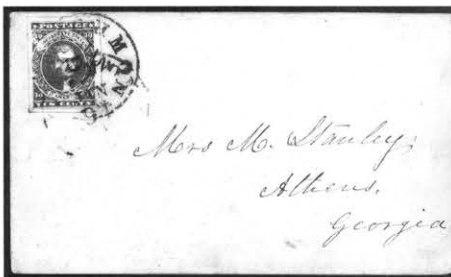 POSTAGE
10 10
TEN CENTS
Mrs M. Stanley.
Athens.
Georgia